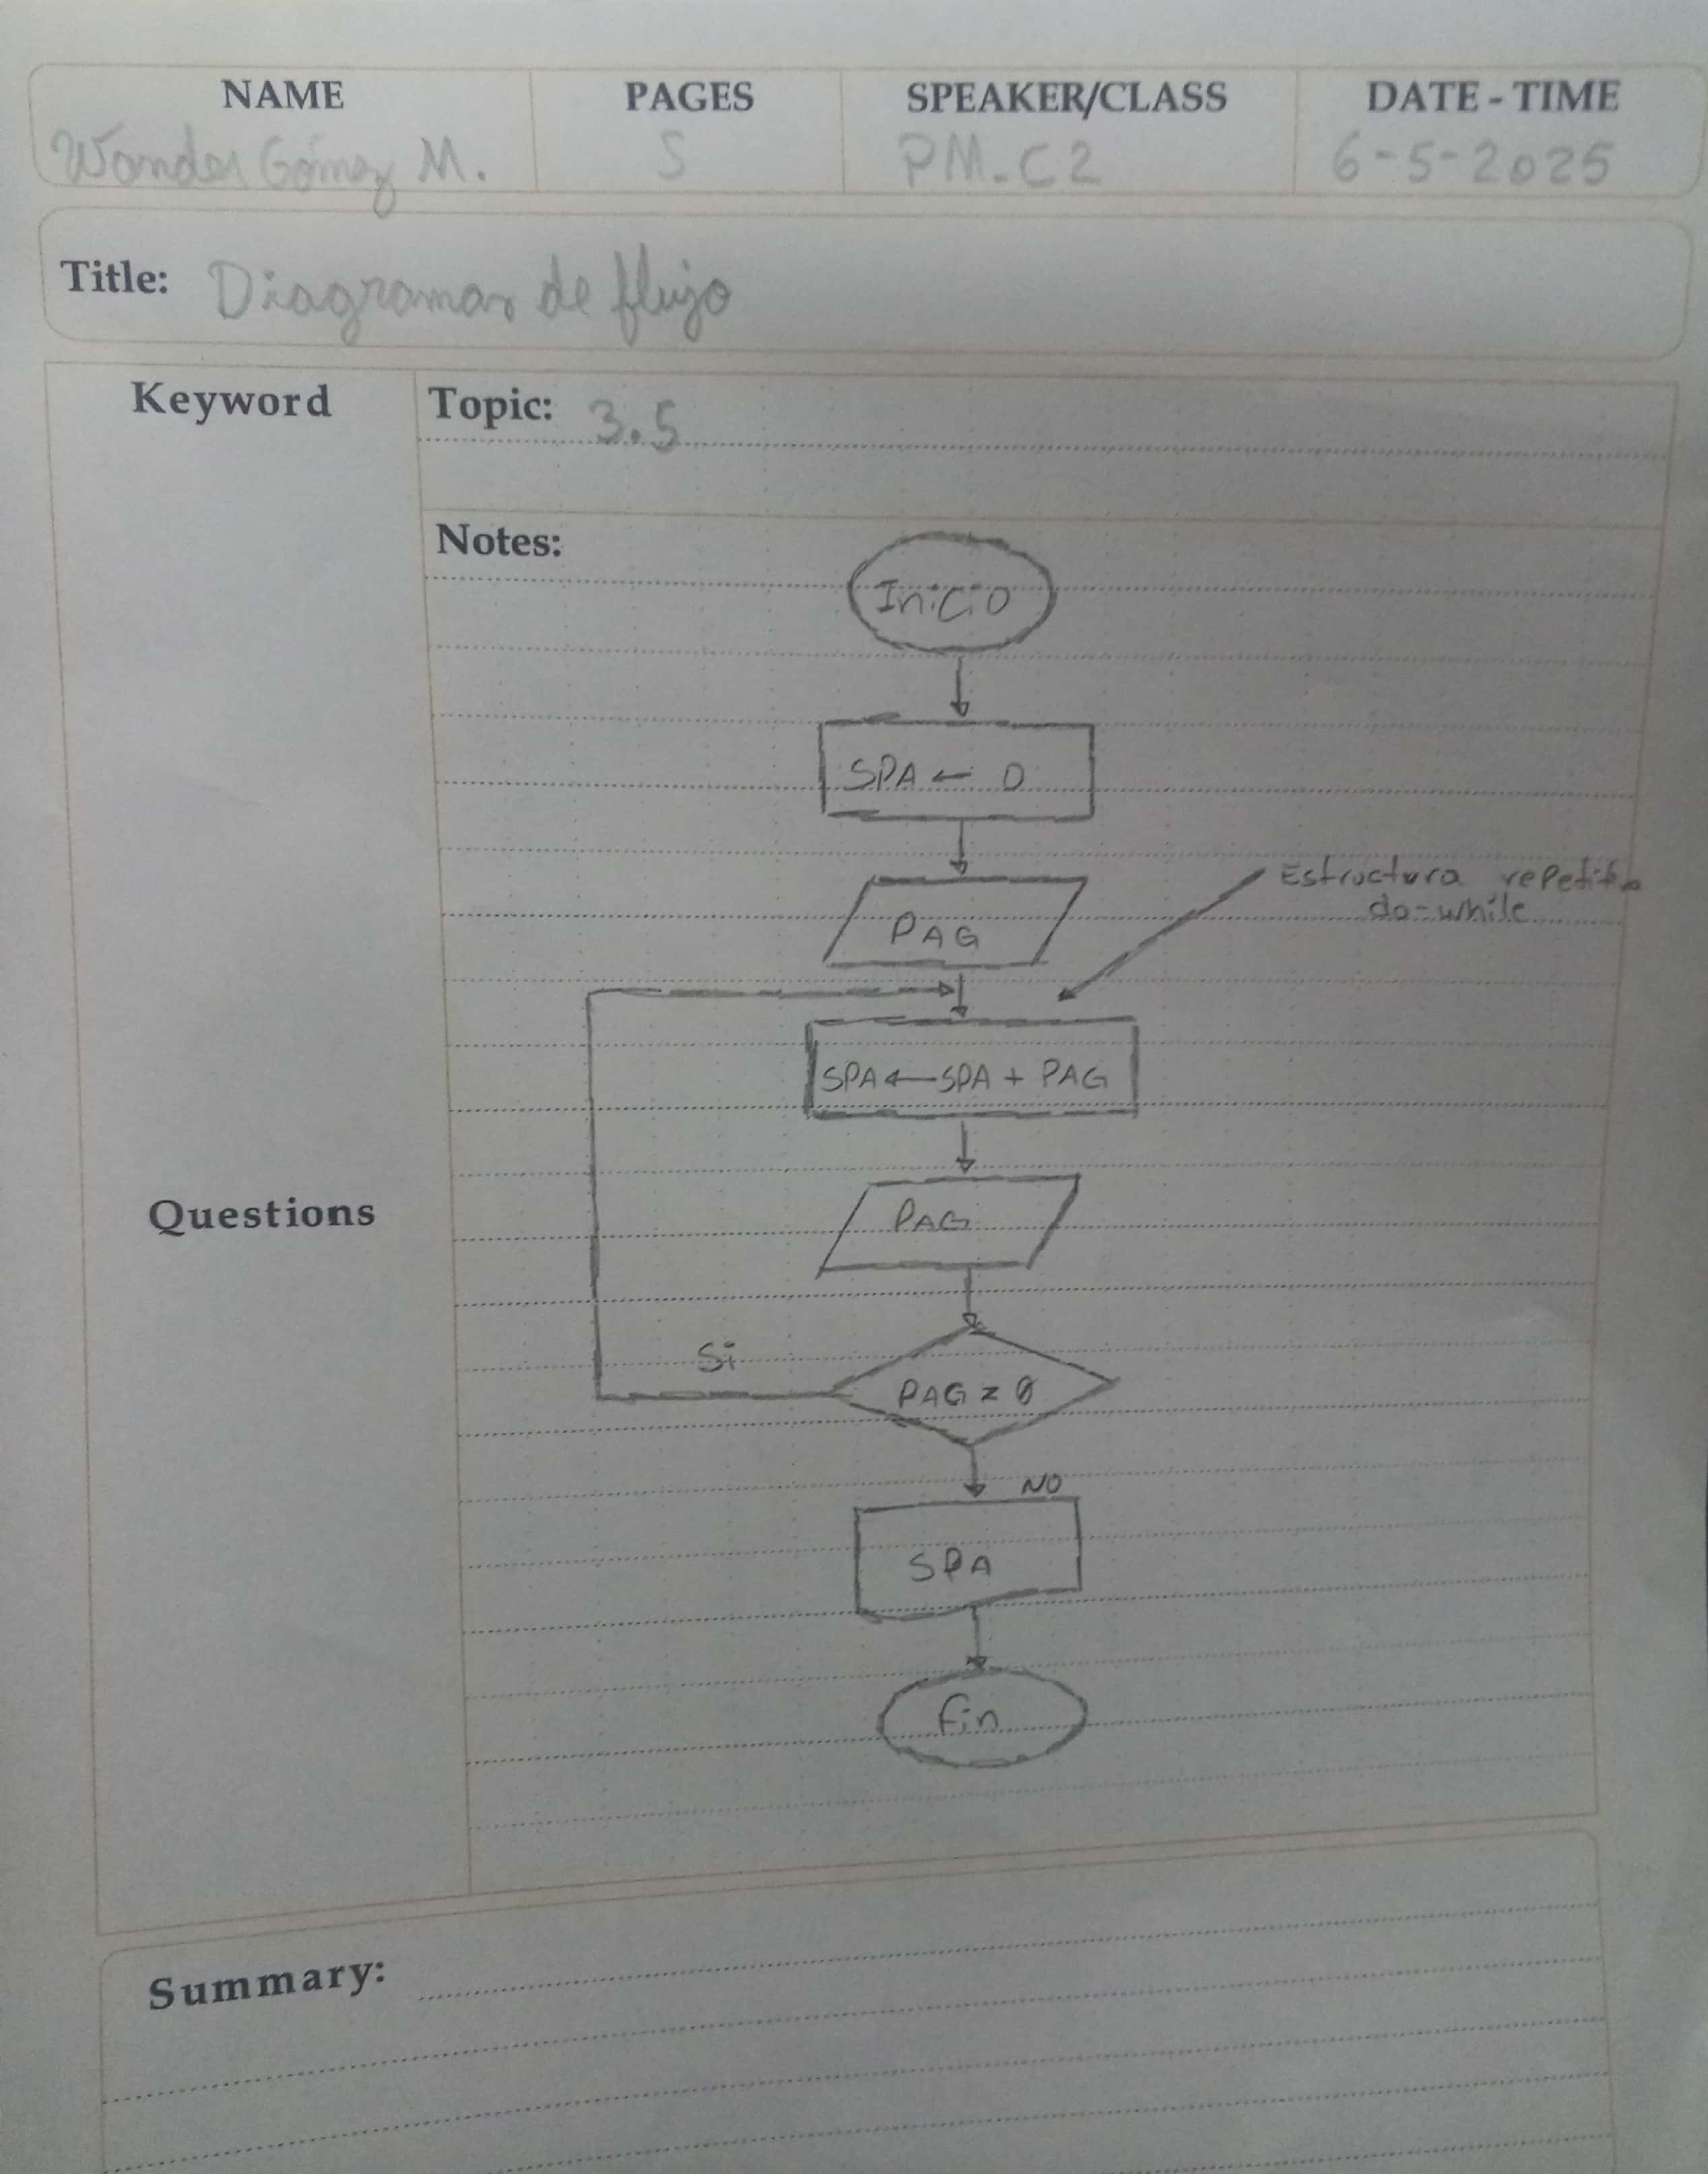 NAME PAGES SPEAKER/CLASS DATE - TIME
Wander Gómez M. 5 PM-C2 6-5-2025
Title: Diagramas de flujo
Keyword
Topic: 3.5
Notes:
Inicio
SPA ← 0
Estructura repetitiva
do-while
PAG
SPA ← SPA + PAG
Questions
PAG
Si
PAG ≠ 0
NO
SPA
Fin
Summary: